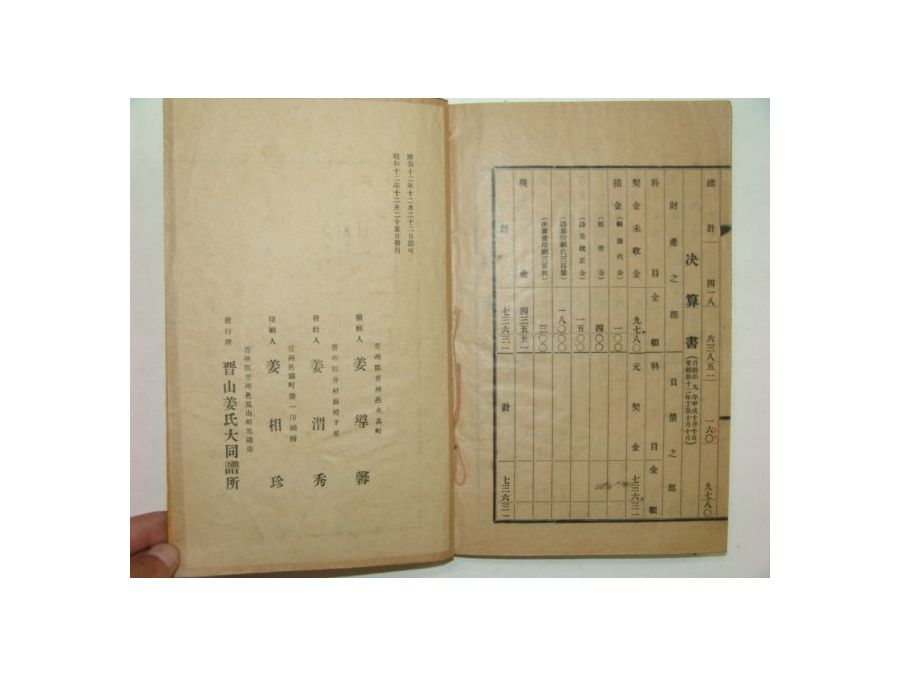 總計 四一八 六三八五一 一六〇 九七八〇
決算書
自昭和九年甲戌十月十日
至昭和十二年丁丑十月十日
財產之部 負債之部
科目 金額 科目 金額
契金未收金 九七八〇 元契金 七三六三一
損金 一〇〇
四〇〇
一五〇〇
一八〇〇
三〇〇
現金 四三五五一
計 七三六三一 計 七三六三一
昭和十二年十二月二十二日認可
昭和十二年十二月二十五日發刊
晋州郡晋州邑水晶町
編輯人 姜導馨
發行人 姜渭秀
印刷人 姜相珍
發行所 晋山姜氏大同譜所